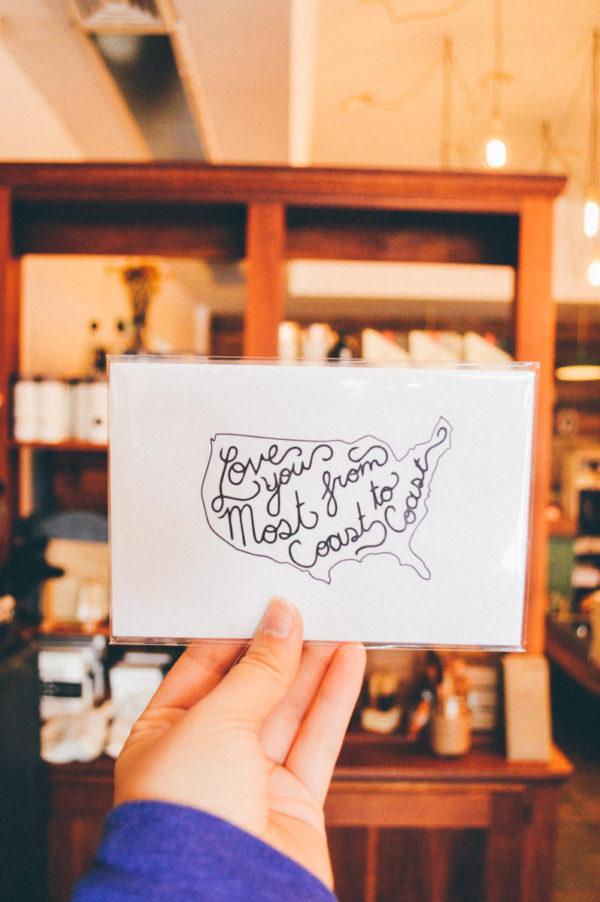 Love you
Most from
Coast to
Coast